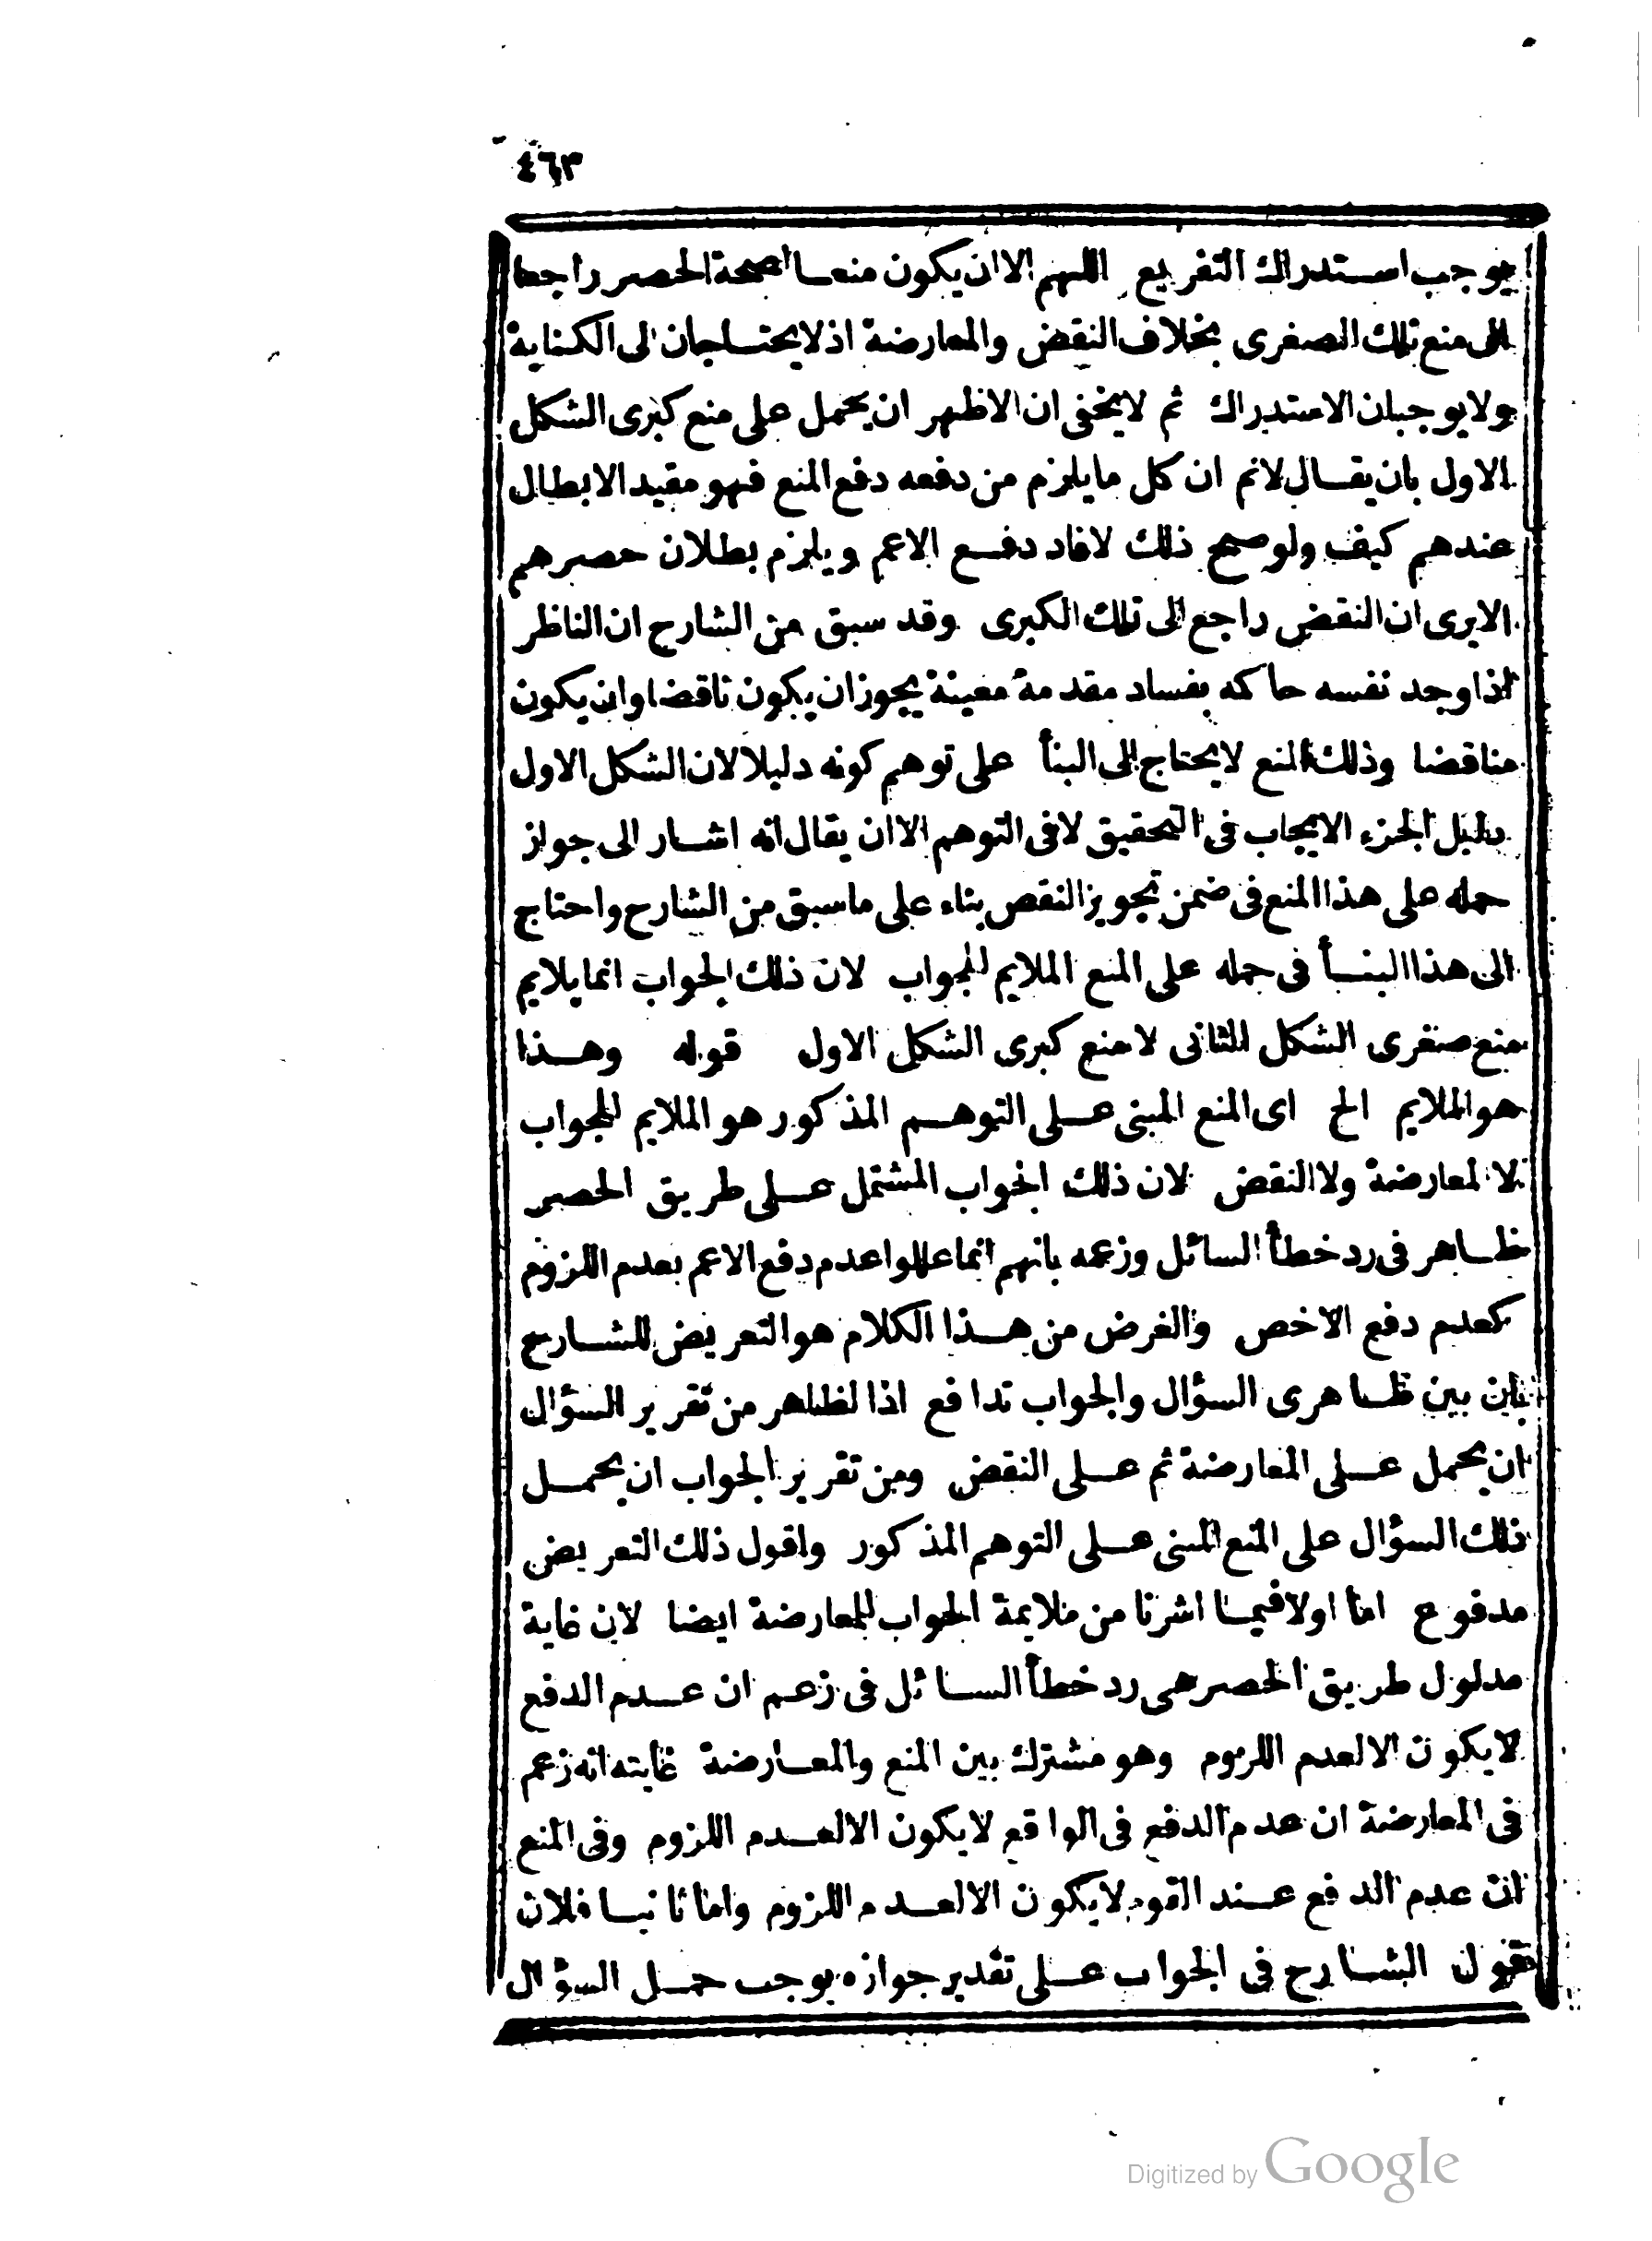 ٤٦٣
يوجب استدراك التفريع اللهم الا ان يكون منعا لصحة الحصر راجعا
الى منع تلك الصغرى بخلاف النقض والمعارضة اذ لا يحتاجان الى الكناية
ولا يوجبان الاستدراك ثم لا يخفى ان الاظهر ان يحمل على منع كبرى الشكل
الاول بان يقال لانم ان كل ما يلزم من دفعه دفع المنع فهو مفيد الابطال
عندهم كيف ولو صح ذلك لافاد دفع الاعم ويلزم بطلان حصرهم
الايرى ان النقض راجع الى تلك الكبرى وقد سبق من الشارح ان الناظر
اذا وجد نفسه حاكه بفساد مقدمة معينة يجوز ان يكون ناقضا وان يكون
مناقضا وذلك المنع لا يحتاج الى البنأ على توهم كونه دليلا لان الشكل الاول
دليل الجزء الايجاب فى التحقيق لا فى التوهم الا ان يقال انه اشار الى جواز
حمله على هذا المنع فى ضمن تجويز النقص بناء على ما سبق من الشارح واحتاج
الى هذا البنأ فى حمله على المنع الملايم للجواب لان ذلك الجواب انما يلايم
منع صغرى الشكل الثانى لا منع كبرى الشكل الاول قوله وهذا
هو الملايم الخ اى المنع المبنى على التوهم المذكور هو الملايم للجواب
لا المعارضة ولا النقض لان ذلك الجواب المشتمل على طريق الحصر
ظاهر فى رد خطأ السائل وزعمه بانهم انما عللوا عدم دفع الاعم بعدم اللزوم
كعدم دفع الاخص والغرض من هذا الكلام هو التعريض للشارح
بان بين ظاهرى السؤال والجواب تدافع اذا لظاهر من تقرير السؤال
ان يحمل على المعارضة ثم على النقض ومن تقرير الجواب ان يحمل
ذلك السؤال على المنع المبنى على التوهم المذكور واقول ذلك التعريض
مدفوع اما اولا فيما اشرنا من ملايمة الجواب للمعارضة ايضا لان غاية
مدلول طريق الحصر هى رد خطأ السائل فى زعم ان عدم الدفع
لا يكون الا لعدم اللزوم وهو مشترك بين المنع والمعارضة غايته انه زعم
فى المعارضة ان عدم الدفع فى الواقع لا يكون الا لعدم اللزوم وفى المنع
ان عدم الدفع عند القوم لا يكون الا لعدم اللزوم واما ثانيا فلان
قول الشارح فى الجواب على تقدير جوازه يوجب حمل السؤال
Digitized by Google